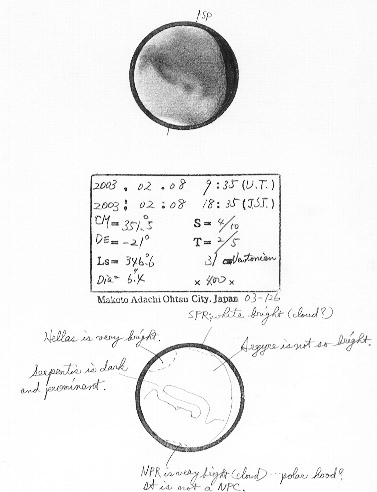 SP
2003. 02. 08 9:35 (U.T.)
2003: 02: 08 18:35 (J.S.T.)
CM= 351.°5 S= 4/10
DE= -21° T= 2/5
Ls= 346.°6 31 cm Newtonian
Dia= 6.″4 × 400 ×
Makoto Adachi Ohtsu City, Japan 03-126
SPR: white bright (cloud?)
Hellas is very bright.
Argyre is not so bright.
Serpentis is dark
and prominent.
NPR is very bright (cloud) ... polar hood?
It is not a NPC.